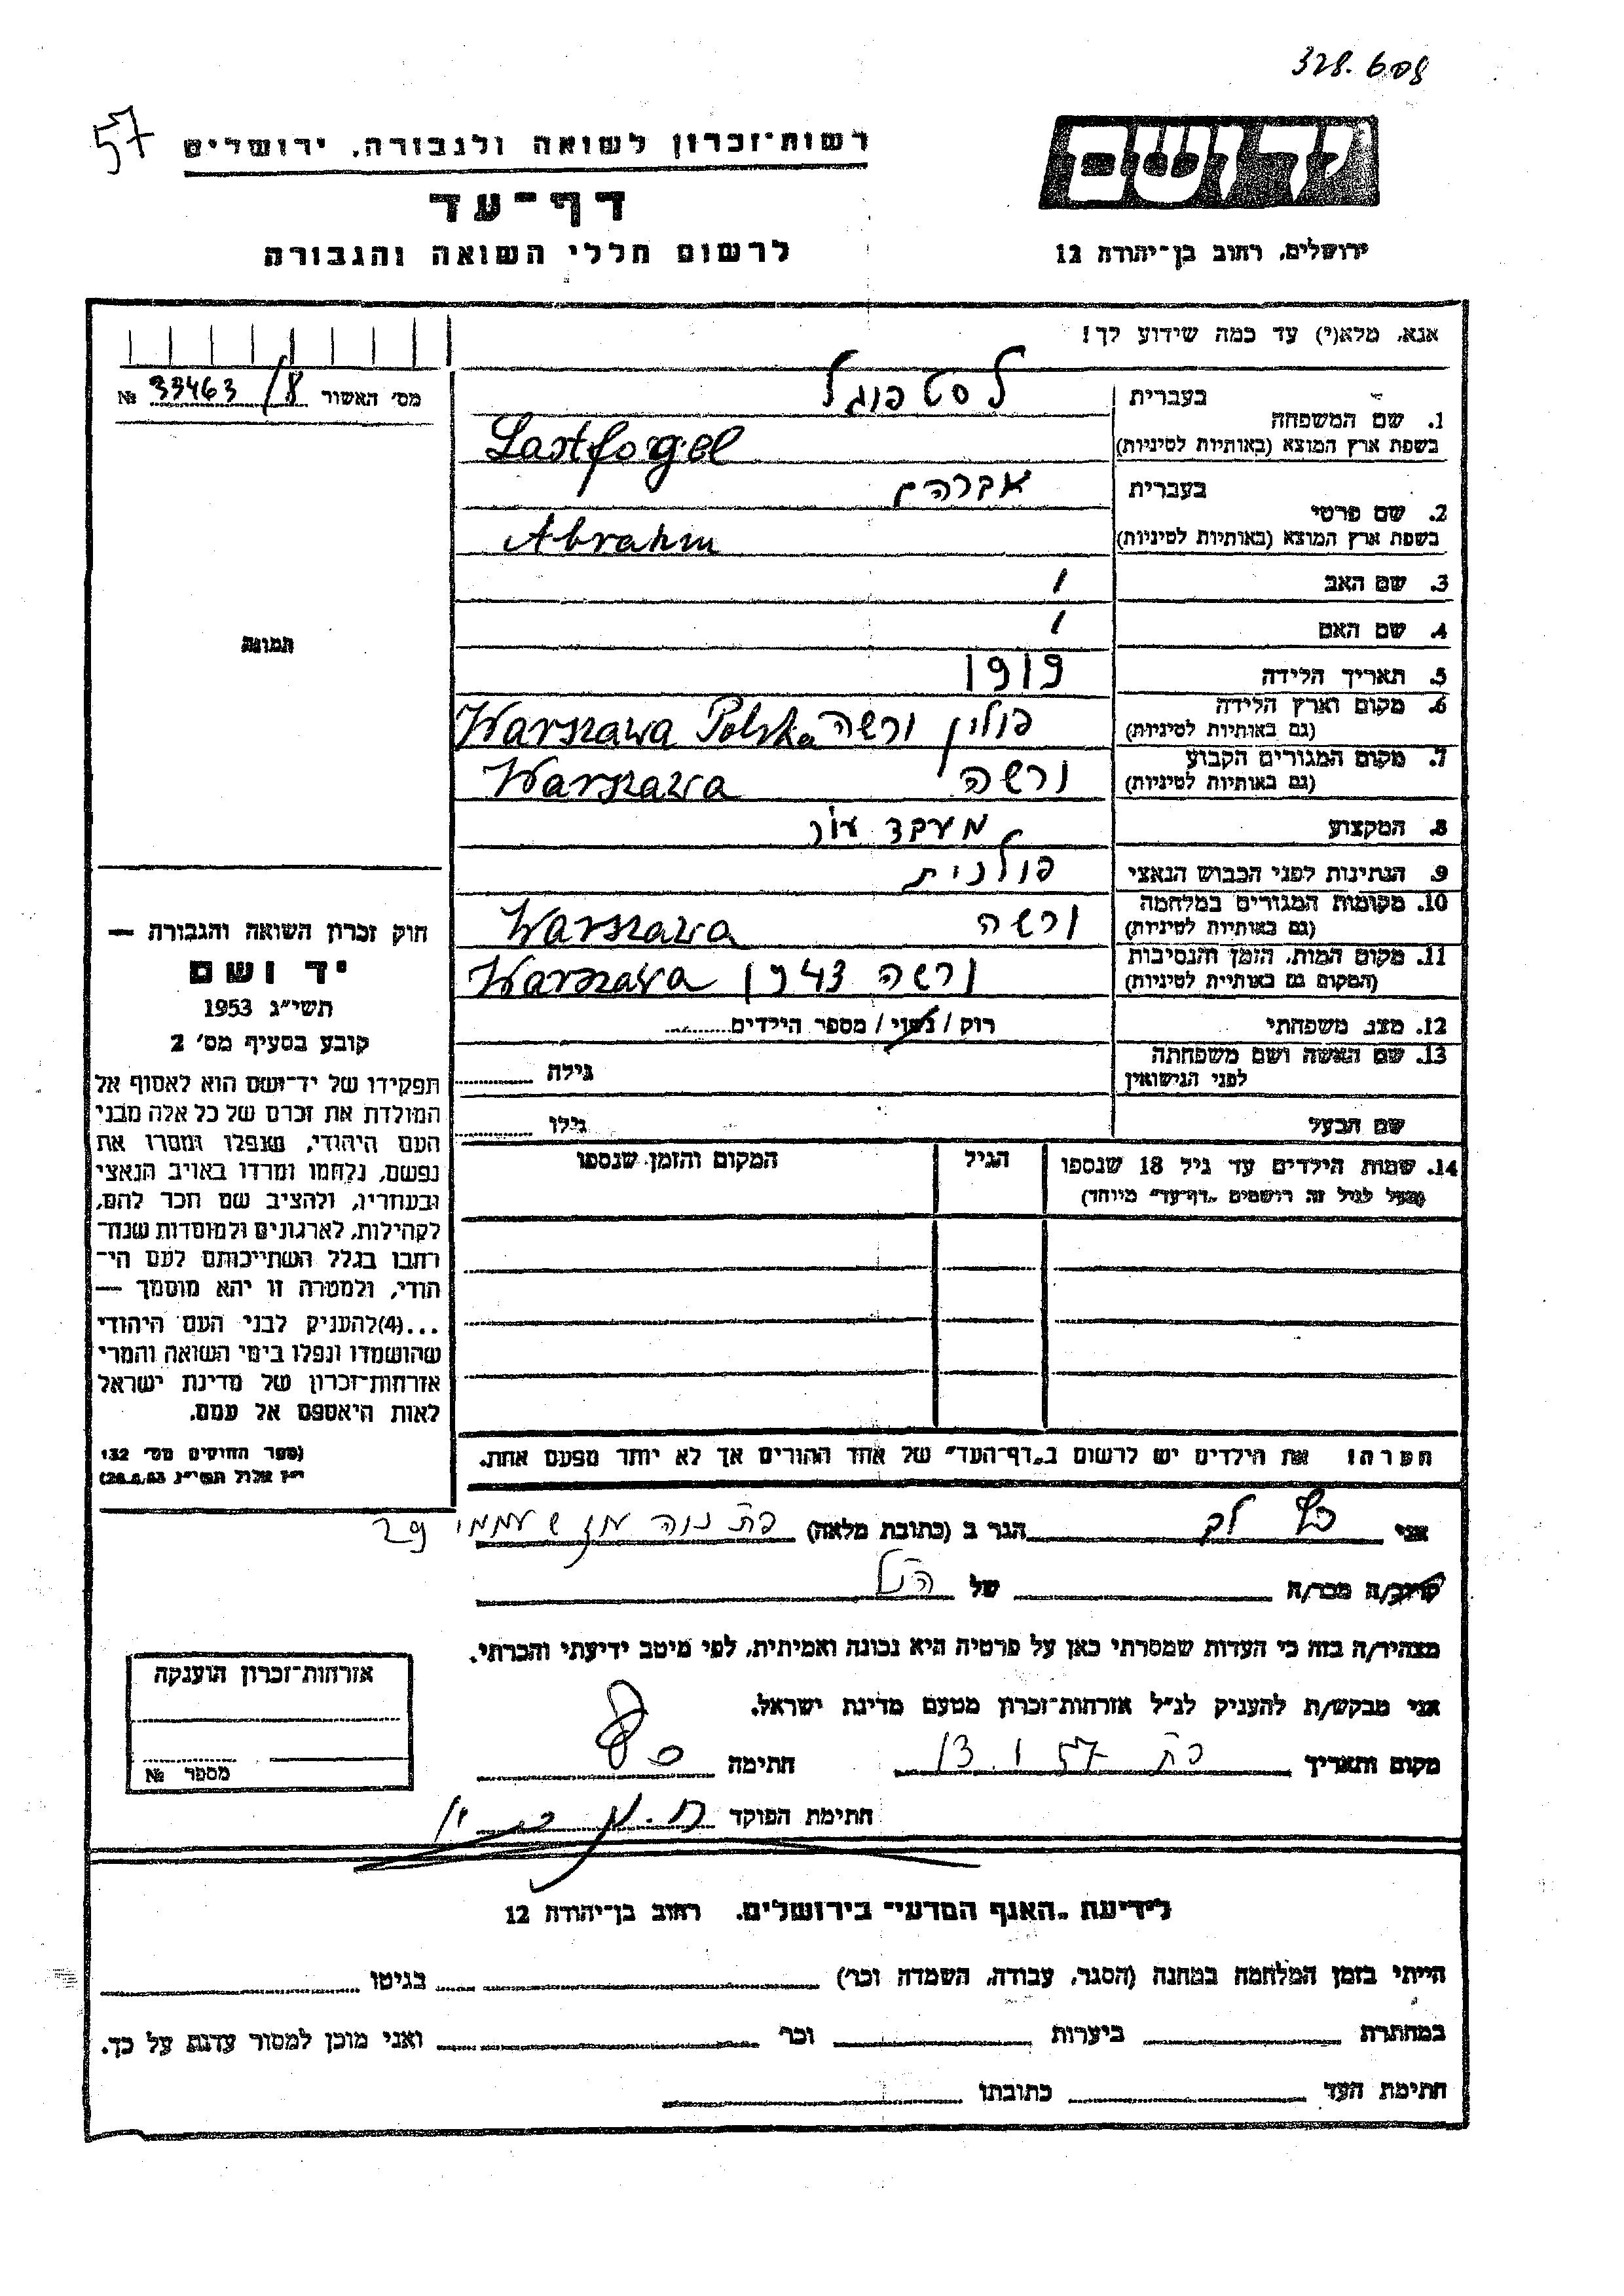 328.608
57
רשות-זכרון לשואה ולגבורה, ירושלים
דף-עד
לרשום חללי השואה והגבורה
ידושם
ירושלים, רחוב בן-יהודה 12
אנא, מלא(י) עד כמה שידוע לך!
מס' האשור 33463/8 №
תמונה
1. שם המשפחה
בעברית לסטפוגל
בשפת ארץ המוצא (באותיות לטיניות) Lastfogel
2. שם פרטי
בעברית אברהם
בשפת ארץ המוצא (באותיות לטיניות) Abrahm
3. שם האב /
4. שם האם /
5. תאריך הלידה 1919
6. מקום וארץ הלידה פולין ורשה Warszawa Polska
(גם באותיות לטיניות)
7. מקום המגורים הקבוע ורשה Warszawa
(גם באותיות לטיניות)
8. המקצוע מעבד עור
9. הנתינות לפני הכבוש הנאצי פולנית
10. מקומות המגורים במלחמה ורשה Warszawa
(גם באותיות לטיניות)
11. מקום המות, הזמן והנסיבות ורשה 1943 Warszawa
(המקום גם באותיות לטיניות)
12. מצב משפחתי רוק / נשוי / מספר הילדים
13. שם האשה ושם משפחתה
לפני הנישואין
גילה
שם הבעל
גילו
14. שמות הילדים עד גיל 18 שנספו
(מעל לגיל זה רושמים "דף-עד" מיוחד)
הגיל
המקום והזמן שנספו
חוק זכרון השואה והגבורה —
יד ושם
תשי"ג 1953
קובע בסעיף מס' 2
תפקידו של יד-ושם הוא לאסוף אל
המולדת את זכרם של כל אלה מבני
העם היהודי, שנפלו ומסרו את
נפשם, נלחמו ומרדו באויב הנאצי
ובעוזריו, ולהציב שם וזכר להם,
לקהילות, לארגונים ולמוסדות שנח-
רבו בגלל השתייכותם לעם הי-
הודי, ולמטרה זו יהא מוסמך —
...(4)להעניק לבני העם היהודי
שהושמדו ונפלו בימי השואה והמרי
אזרחות-זכרון של מדינת ישראל
לאות היאספם אל עמם.
(ספר החוקים מס' 132
י"ז אלול תשי"ג 28.8.53)
הערה! את הילדים יש לרשום ב"דף-העד" של אחד ההורים אך לא יותר מפעם אחת.
אני כץ לב הגר ב (כתובת מלאה) פת נוה עוז שעממי 29
קרוב/ה מכר/ה של הנ"ל
מצהיר/ה בזה כי העדות שמסרתי כאן על פרטיה היא נכונה ואמיתית, לפי מיטב ידיעתי והכרתי.
אני מבקש/ת להעניק לנ"ל אזרחות-זכרון מטעם מדינת ישראל.
מקום ותאריך פת 13.1.57 חתימה
חתימת הפוקד
אזרחות-זכרון הוענקה
מספר №
לידיעת "האגף המדעי" בירושלים, רחוב בן-יהודה 12
הייתי בזמן המלחמה במחנה (הסגר, עבודה, השמדה וכו') בגיטו
במחתרת ביערות וכו' ואני מוכן למסור עדות על כך.
חתימת העד כתובתו